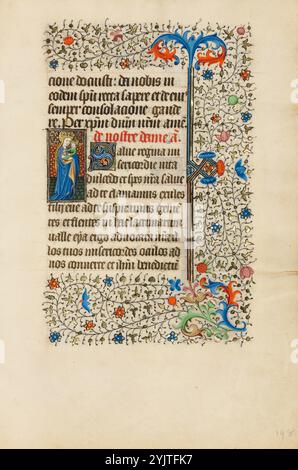 cione docuisti: da nobis in
eodem spu recta sapere et de eius
semper consolacione gaude
re. Per xpm dnm nrm amen.
de nostre dame
Salue regina mi
sericordie vita
dulcedo et spes nra salue
ad te clamamus exules
filij eue ad te suspiramus gemen
tes et flentes in hac lacrimarum
ualle eya ergo aduocata nostra
illos tuos misericordes oculos ad
nos conuerte et ihm benedictum
alamy
Image ID: 2YJTFK7
www.alamy.com